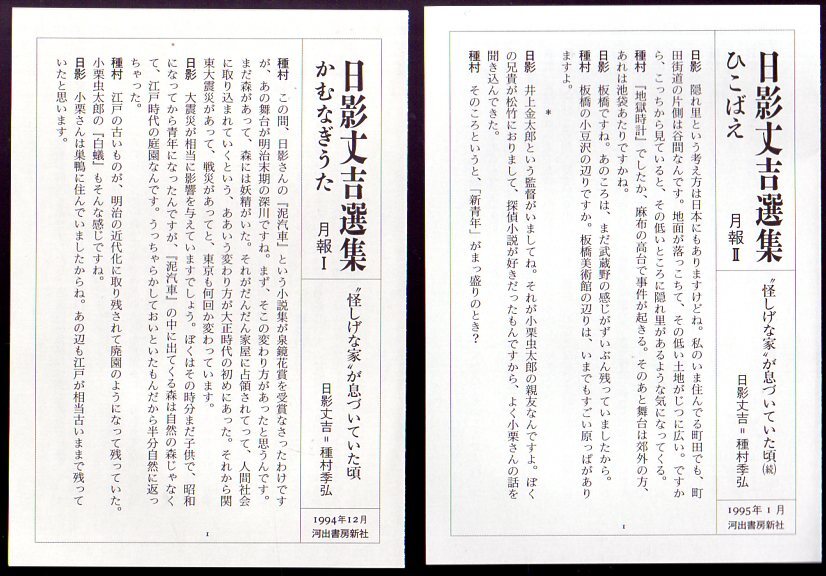 日影丈吉選集
かむなぎうた 月報Ⅰ
〝怪しげな家〟が息づいていた頃
日影丈吉＝種村季弘
1994年12月
河出書房新社
種村　この間、日影さんの『泥汽車』という小説集が泉鏡花賞を受賞なさったわけです
が、あの舞台が明治末期の深川ですね。まず、そこの変わり方があったと思うんです。
まだ森があって、森には妖精がいた。それがだんだん家屋に占領されてって、人間社会
に取り込まれていくという、ああいう変わり方が大正時代の初めにあった。それから関
東大震災があって、戦災があってと、東京も何回か変わっています。
日影　大震災が相当に影響を与えていますでしょう。ぼくはその時分まだ子供で、昭和
になってから青年になったんですが、『泥汽車』の中に出てくる森は自然の森じゃなく
て、江戸時代の庭園なんです。うっちゃらかしておいといたもんだから半分自然に返っ
ちゃった。
種村　江戸の古いものが、明治の近代化に取り残されて廃園のようになって残っていた。
小栗虫太郎の『白蟻』もそんな感じですね。
日影　小栗さんは巣鴨に住んでいましたからね。あの辺も江戸が相当古いままで残って
いたと思います。
1
日影丈吉選集
ひこばえ 月報Ⅱ
〝怪しげな家〟が息づいていた頃（続）
日影丈吉＝種村季弘
1995年1月
河出書房新社
日影　隠れ里という考え方は日本にもありますけどね。私のいま住んでる町田でも、町
田街道の片側は谷間なんです。地面が落っこちて、その低い土地がじつに広い。ですか
ら、こっちから見ていると、その低いところに隠れ里があるような気になってくる。
種村　『地獄時計』でしたか、麻布の高台で事件が起きる。そのあと舞台は郊外の方、
あれは池袋あたりですかね。
日影　板橋ですね。あのころは、まだ武蔵野の感じがずいぶん残っていましたから。
種村　板橋の小豆沢の辺りですか。板橋美術館の辺りは、いまでもすごい原っぱがあり
ますよ。
＊
日影　井上金太郎という監督がいましてね。それが小栗虫太郎の親友なんですよ。ぼく
の兄貴が松竹におりまして、探偵小説が好きだったもんですから、よく小栗さんの話を
聞き込んできた。
種村　そのころというと、「新青年」がまっ盛りのとき？
1